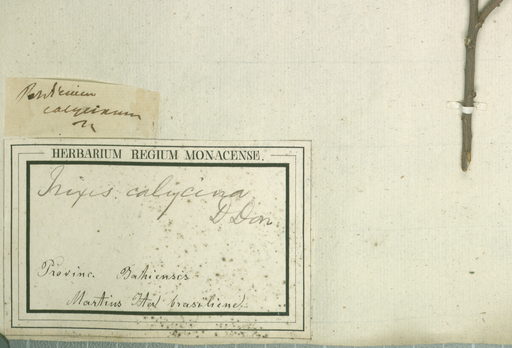 calycinum
HERBARIUM REGIUM MONACENSE.
Trixis. calycina
D Don
Provinc. Bahiensis
Martius Iter brasiliense